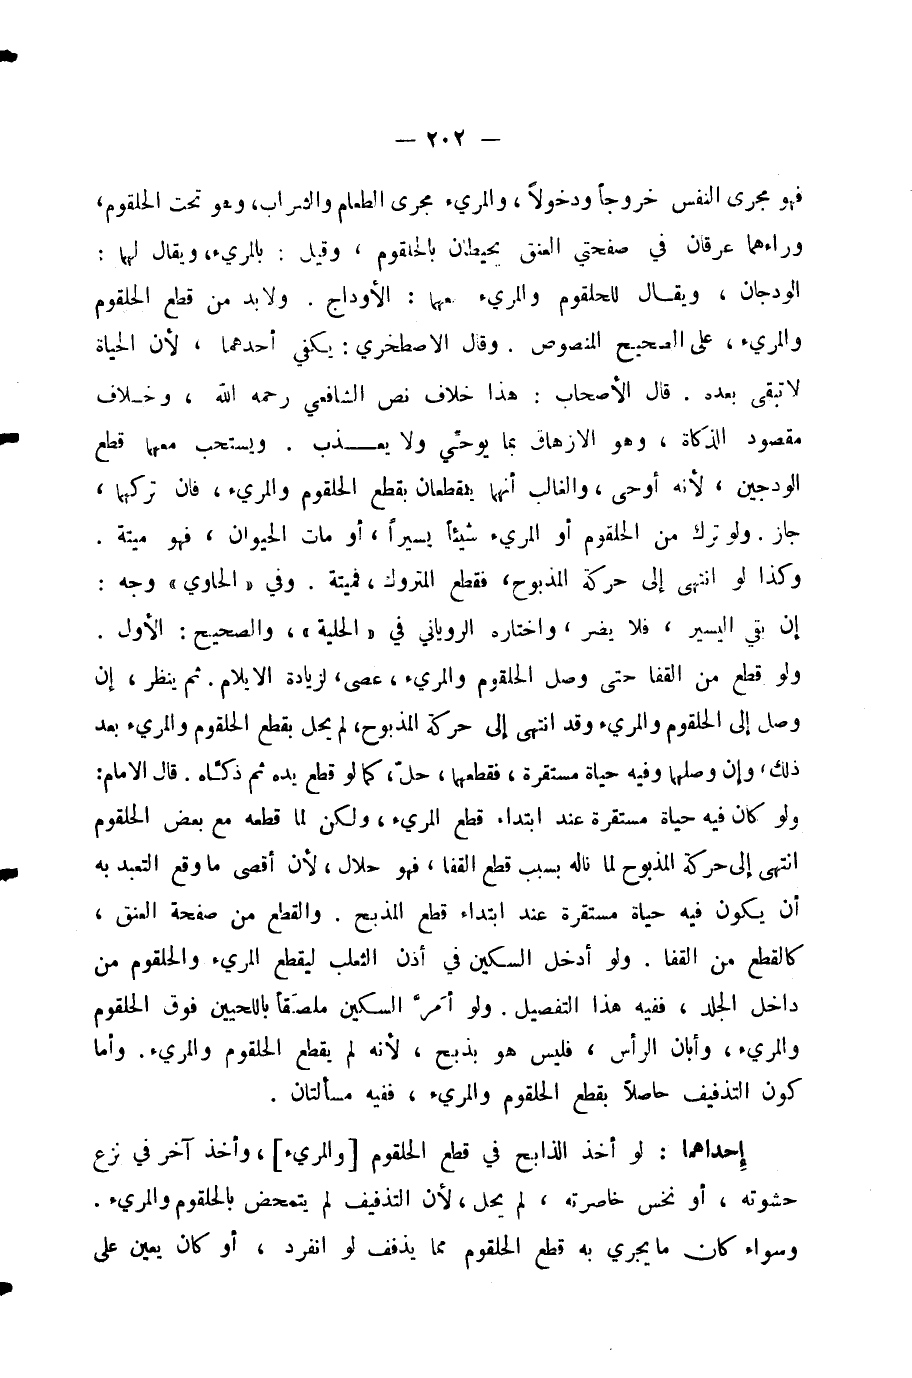 — ٢٠٢ —
فهو مجرى النفس خروجاً ودخولاً ، والمريء مجرى الطعام والشراب ، وهو تحت الحلقوم ،
وراءهما عرقان في صفحتي العنق يحيطان بالحلقوم ، وقيل : بالمريء ، ويقال لهما :
الودجان ، ويقـــال للحلقوم والمريء معهما : الأوداج . ولابد من قطع الحلقوم
والمريء ، على الصحيح المنصوص . وقال الاصطخري : يكفي أحدهما ، لأن الحياة
لاتبقى بعده . قال الأصحاب : هذا خلاف نص الشافعي رحمه الله ، وخــلاف
مقصود الذكاة ، وهو الازهاق بما يوحّي ولا يعـــــذب . ويستحب معهما قطع
الودجين ، لأنه أوحى ، والغالب أنهما ينقطعان بقطع الحلقوم والمريء ، فان تركهما ،
جاز . ولو ترك من الحلقوم أو المريء شيئاً يسيراً ، أو مات الحيوان ، فهو ميتة .
وكذا لو انتهى إلى حركة المذبوح ، فقطع المتروك ، فميتة . وفي « الحاوي » وجه :
إن بقي اليسير ، فلا يضر ، واختاره الروياني في « الحلية » ، والصحيح : الأول .
ولو قطع من القفا حتى وصل الحلقوم والمريء ، عصى ، لزيادة الايلام . ثم ينظر ، إن
وصل إلى الحلقوم والمريء وقد انتهى إلى حركة المذبوح ، لم يحل بقطع الحلقوم والمريء بعد
ذلك ، وإن وصلهما وفيه حياة مستقرة ، فقطعهما ، حلّ ، كما لو قطع يده ثم ذكـاه . قال الامام:
ولو كان فيه حياة مستقرة عند ابتداء قطع المريء ، ولكن لما قطعه مع بعض الحلقوم
انتهى إلى حركة المذبوح لما ناله بسبب قطع القفا ، فهو حلال ، لأن أقصى ماوقع التعبد به
أن يكون فيه حياة مستقرة عند ابتداء قطع المذبح . والقطع من صفحة العنق ،
كالقطع من القفا . ولو أدخل السكين في أذن الثعلب ليقطع المريء والحلقوم من
داخل الجلد ، ففيه هذا التفصيل . ولو أمَرَّ السكين ملصَقاً باللحيين فوق الحلقوم
والمريء ، وأبان الرأس ، فليس هو بذبح ، لأنه لم يقطع الحلقوم والمريء . وأما
كون التذفيف حاصلاً بقطع الحلقوم والمريء ، ففيه مسألتان .
إِحداهما : لو أخذ الذابح في قطع الحلقوم [والمريء] ، وأخذ آخر في نزع
حشوته ، أو نخس خاصرته ، لم يحل ، لأن التذفيف لم يتمحض بالحلقوم والمريء .
وسواء كان مايجري به قطع الحلقوم مما يذفف لو انفرد ، أو كان يعين على